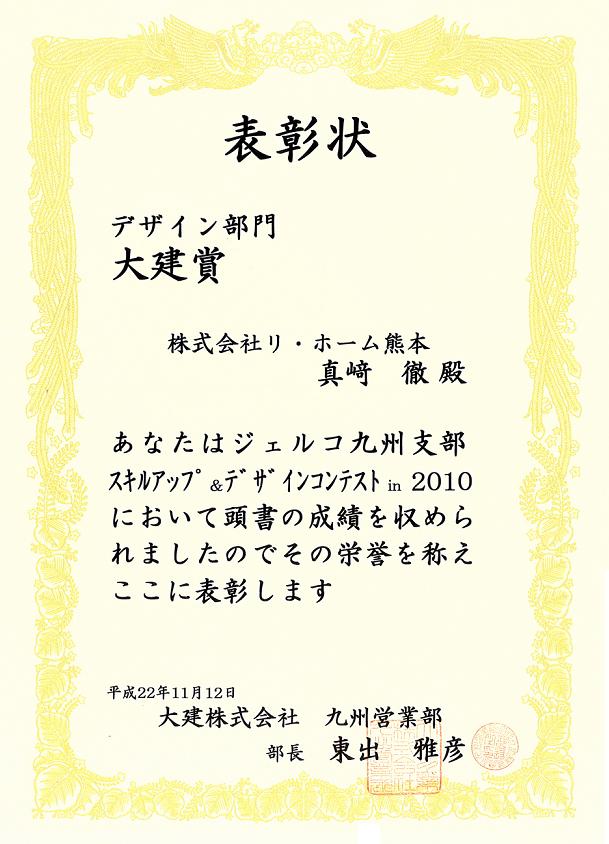 表彰状
デザイン部門
大建賞
株式会社リ・ホーム熊本
真﨑　徹 殿
あなたはジェルコ九州支部
ｽｷﾙｱｯﾌﾟ&ﾃﾞｻﾞｲﾝｺﾝﾃｽﾄ in 2010
において頭書の成績を収めら
れましたのでその栄誉を称え
ここに表彰します
平成22年11月12日
大建株式会社　九州営業部
部長　東出　雅彦